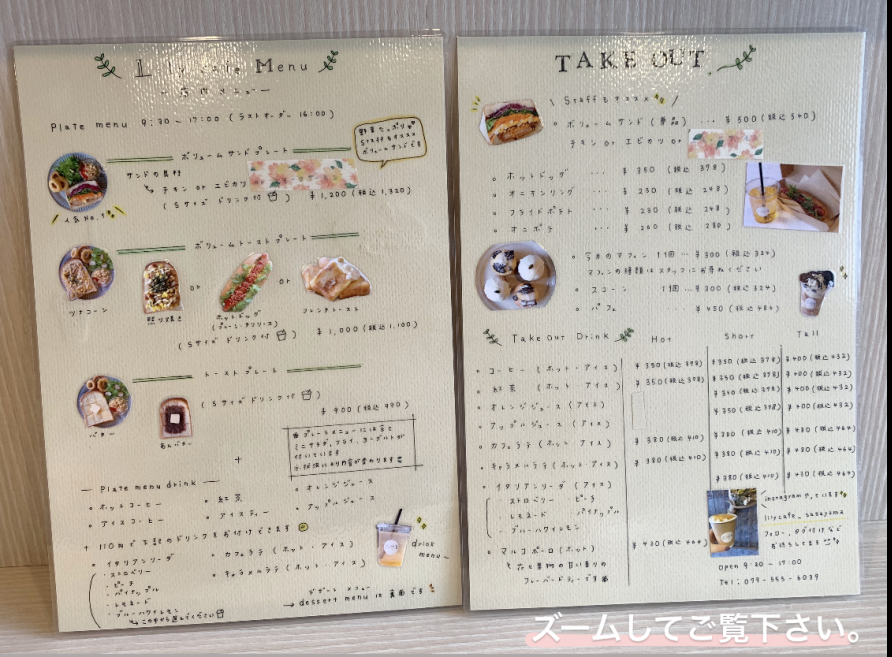 Lily cafe Menu
- 店内メニュー -
Plate menu 9:30〜17:00 (ラストオーダー 16:00)
野菜たっぷり
Staffもオススメ
ボリュームサンドです
ボリュームサンドプレート
サンドの具材
↳ チキン or エビカツ
(Sサイズ ドリンク付) ¥1,200(税込1,320)
人気No.1
ボリュームトーストプレート
or
or
ツナコーン
照り焼き
ホットドッグ
フレンチトースト
(Sサイズ ドリンク付) ¥1,000(税込1,100)
トーストプレート
(Sサイズドリンク付)
¥900(税込990)
バター
あんバター
プレートメニューには全て
ミニサラダ、フライ、ヨーグルトが
付いています
+
- Plate menu drink -
・ホットコーヒー
・紅茶
・オレンジジュース
・アイスコーヒー
・アイスティー
・アップルジュース
+110円で下記のドリンクをお付けできます
・イタリアンソーダ
・カフェラテ (ホット・アイス)
・キャラメルラテ (ホット・アイス)
・ストロベリー
・ピーチ
・パイナップル
・レモネード
・ブルーハワイレモン
↳この中から選んでください
drink
menu
デザート メニュー
→ dessert menu は裏面です
TAKE OUT
\ Staffもオススメ /
・ボリュームサンド (単品) ... ¥500(税込540)
チキン or エビカツ or
・ホットドッグ ... ¥350 (税込 378)
・オニオンリング ... ¥230 (税込 248)
・フライドポテト ... ¥230 (税込 248)
・オニポテ ... ¥260 (税込 280)
・今日のマフィン 1個 ... ¥300 (税込324)
マフィンの種類はスタッフにお尋ねください
・スコーン 1個 ... ¥300 (税込324)
・パフェ ¥450 (税込486)
Take out Drink
Hot
Short
Tall
・コーヒー (ホット・アイス) ¥350(税込378) ¥350(税込378) ¥400(税込432)
・紅茶 (ホット・アイス) ¥350(税込378) ¥350(税込378) ¥400(税込432)
・オレンジジュース (アイス) ¥350(税込378) ¥400(税込432)
・アップルジュース (アイス) ¥350(税込378) ¥400(税込432)
・カフェラテ (ホット・アイス) ¥380(税込410) ¥380(税込410) ¥430(税込464)
・キャラメルラテ (ホット・アイス) ¥380(税込410) ¥380(税込410) ¥430(税込464)
・イタリアンソーダ (アイス) ¥380(税込410) ¥430(税込464)
・ストロベリー ・ピーチ
・レモネード ・パイナップル
・ブルーハワイレモン
・マルコポーロ (ホット) ¥430(税込464)
花と果物の甘い香りの
フレーバードティーです
instagramやっています
lilycafe_sasayama
フォロー、タグ付けなど
お待ちしてます
Open 9:30 - 17:00
Tel: 079-555-6039
ズームしてご覧下さい。